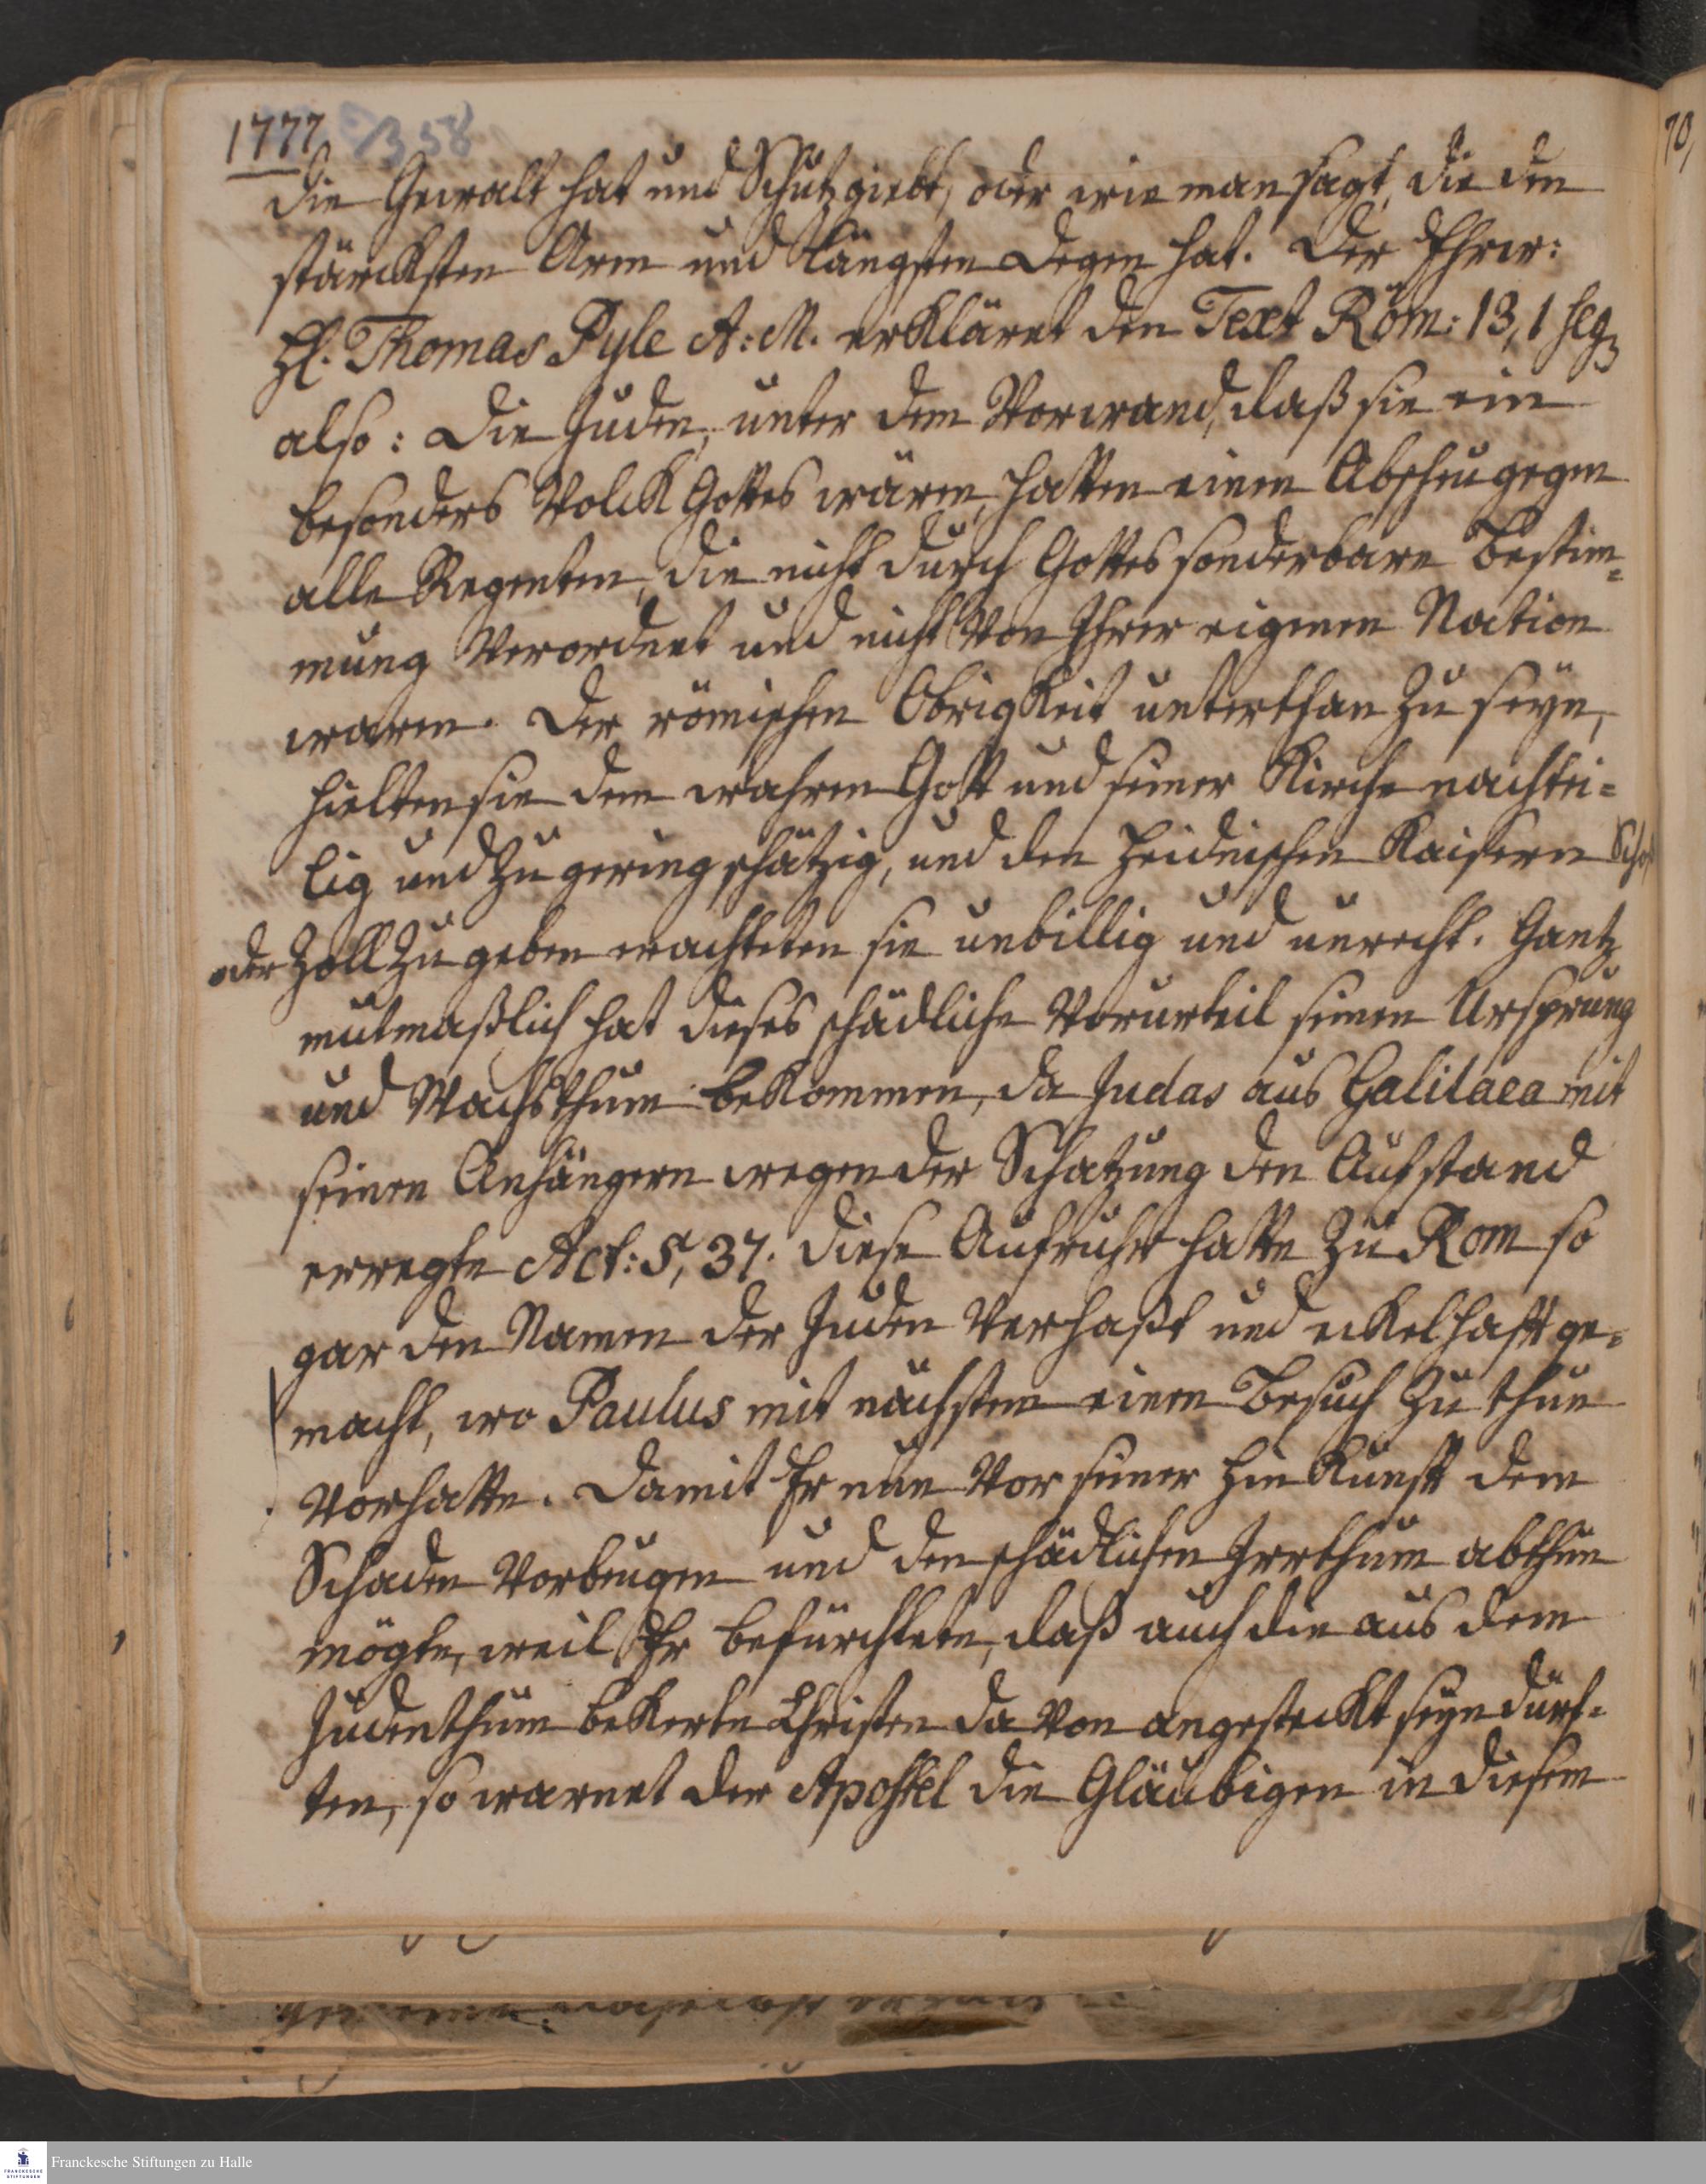 1777 358
die Gewalt hat und Schutz giebt, oder wie man sagt, die den
stärcksten Arm und längsten Degen hat. Der Ehrw:
H. Thomas Pyle A: M. erkläret den Text Röm: 13, 1 seq
also: Die Juden, unter dem Vorwand, daß sie ein
besonders Volck Gottes wären, hatten einen Abscheu gegen
alle Regenten, die nicht durch Gottes sonderbare Bestim=
mung verordnet und nicht von Ihrer eigenen Nation
waren. Der römischen Obrigkeit unterthan zu seyn,
hielten sie dem wahren Gott und seiner Kirche nachtei=
lig und zu geringschätzig, und den heidnischen Kaisern
oder Zoll zu geben erachteten sie unbillig und unrecht. Gantz
mutmaßlich hat dieses schädliche Vorurteil seinen Ursprung
und Wachsthum bekommen, da Judas aus Galilaea mit
seinen Anhängern wegen der Schatzung den Aufstand
erregte Act: 5, 37. Diese Aufruhr hatte zu Rom so
gar den Namen der Juden verhaßt und eckelhafft ge=
macht, wo Paulus mit nächsten einen Besuch zu thun
vorhatte. Damit Er nun vor seiner Hinkunft dem
Schaden vorbeugen und den schädlichen Irrthum abthun
mögte, weil Er befürchtete, daß auch die aus dem
Judenthum bekerte Christen da von angesteckt seyn dürf=
ten, so warnet der Apostel die Gläubigen in diesem
70,
Franckesche Stiftungen zu Halle